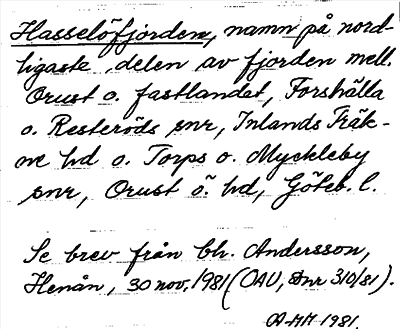 Hasselöfjorden, namn på nord-
ligaste delen av fjorden mell.
Orust o. fastlandet, Forshälla
o. Resteröds snr, Inlands Fräk-
ne hd o. Torps o. Myckleby
snr, Orust ö. hd, Göteb. l.
Se brev från bh. Andersson,
Henån, 30 nov. 1981 (OAU, Dnr 310/81).
A-MH 1981.